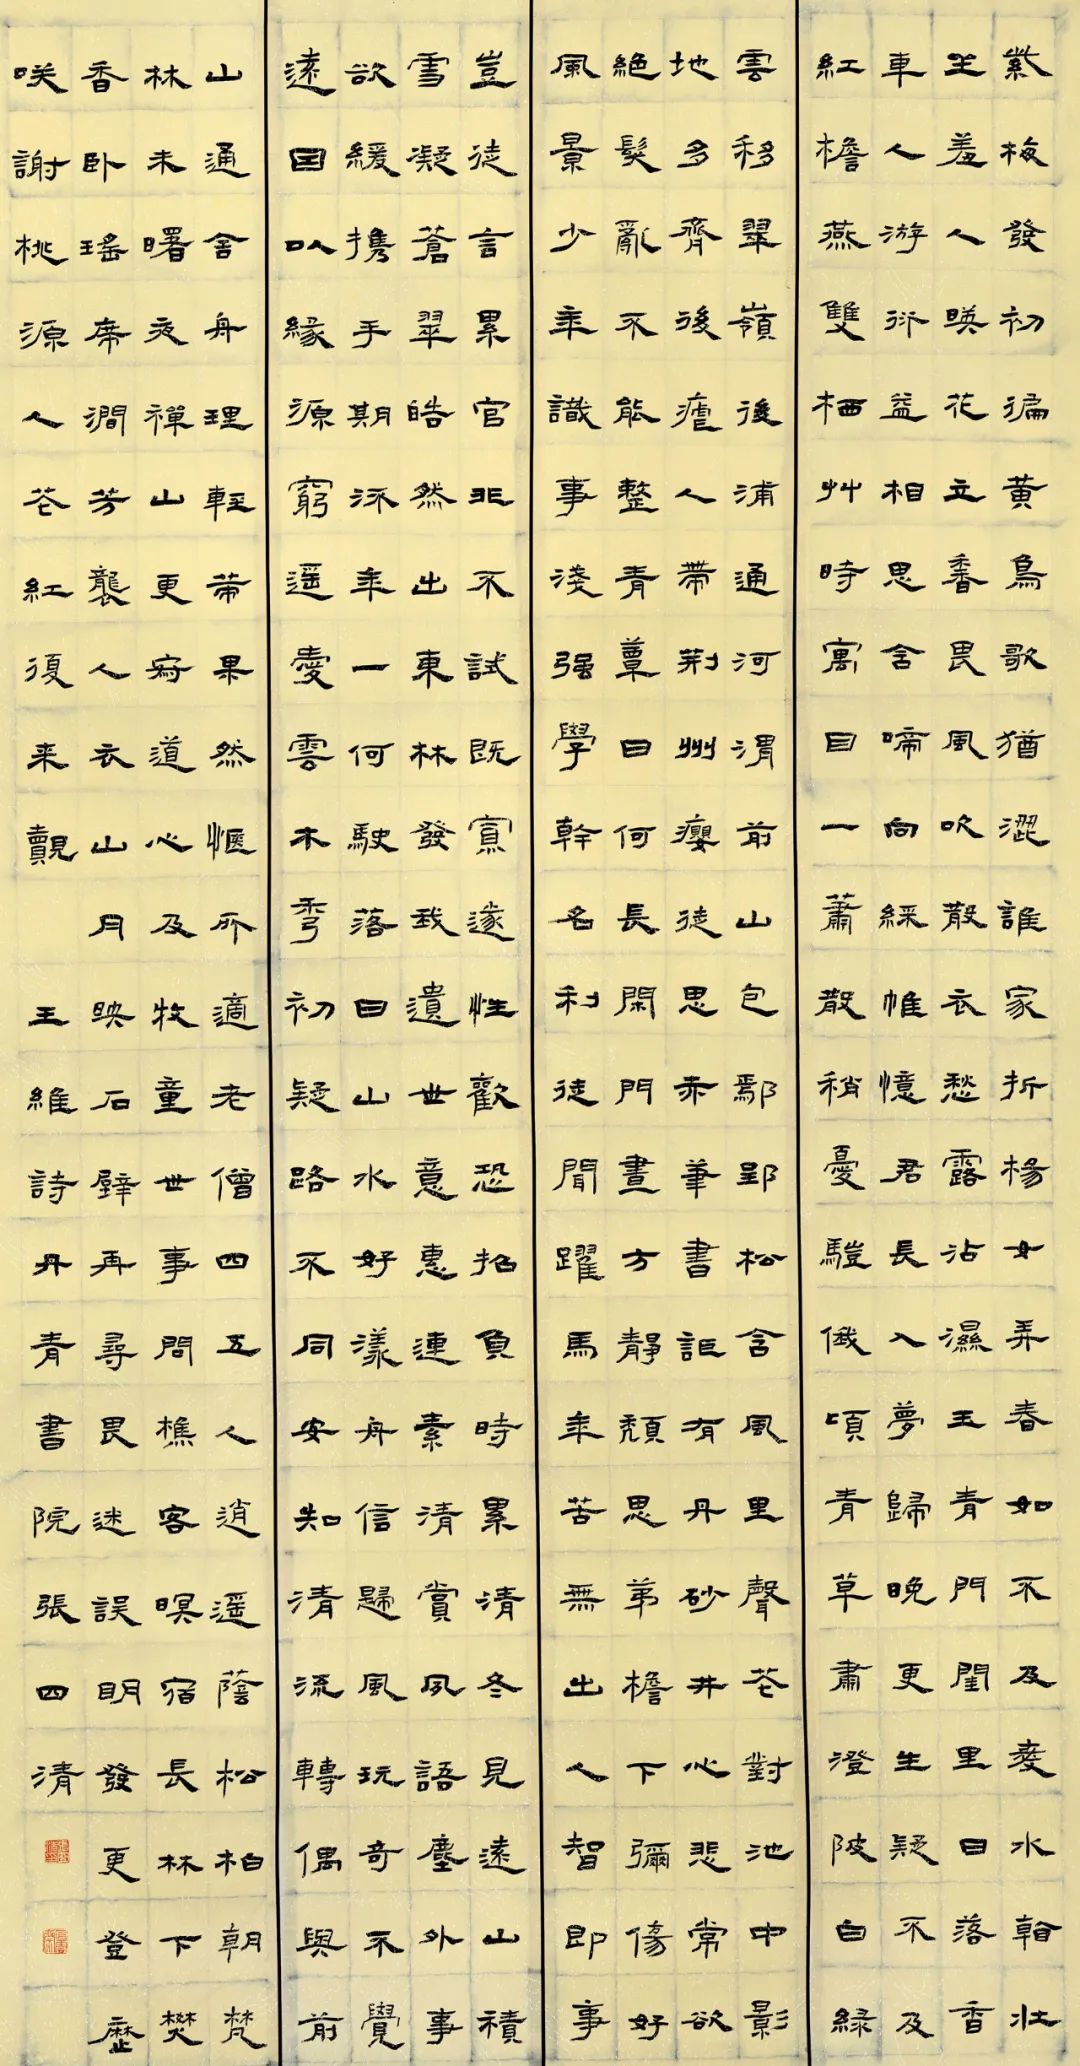 紫梅發初徧黃鳥歌猶澀誰家折楊女弄春如不及愛水看妝
坐羞人暎花立香畏風吹散衣愁露沾濕玉青門閨里日落香
車人游衍益相思含啼向綵帷憶君長入夢歸晚更生疑不及
紅檐燕雙栖艸時寓目一蕭散稍憂俄頃青草肅澄陂白綠
雲移翠嶺後浦通河渭前山包鄢郢松含風里聲花對池中影
地多齊後瘧人帶荊州癭徒思赤筆書詎有丹砂井心悲常欲
絕髮亂不能整青簟日何長閑門晝方靜頹思茅檐下彌傷好
風景少年識事淺强學幹名利徒聞躍馬年苦無出人智即事
豈徒言累官非不試既寡遂性歡恐招負時累清冬見遠山積
雪凝蒼翠皓然出東林發我遺世意惠連素清賞夙語塵外事
欲緩攜手期流年一何駛落日山水好漾舟信歸風玩奇不覺
遠因以緣源窮遥愛雲木秀初疑路不同安知清流轉偶與前
山通舍舟理輕策果然愜所適老僧四五人逍遥蔭松柏朝梵
林未曙夜禪山更寂道心及牧童世事問樵客暝宿長林下焚
香卧瑤席澗芳襲人衣山月映石壁再尋畏迷誤明發更登歷
笑謝桃源人花紅復來覿 王維詩丹青書院張四清